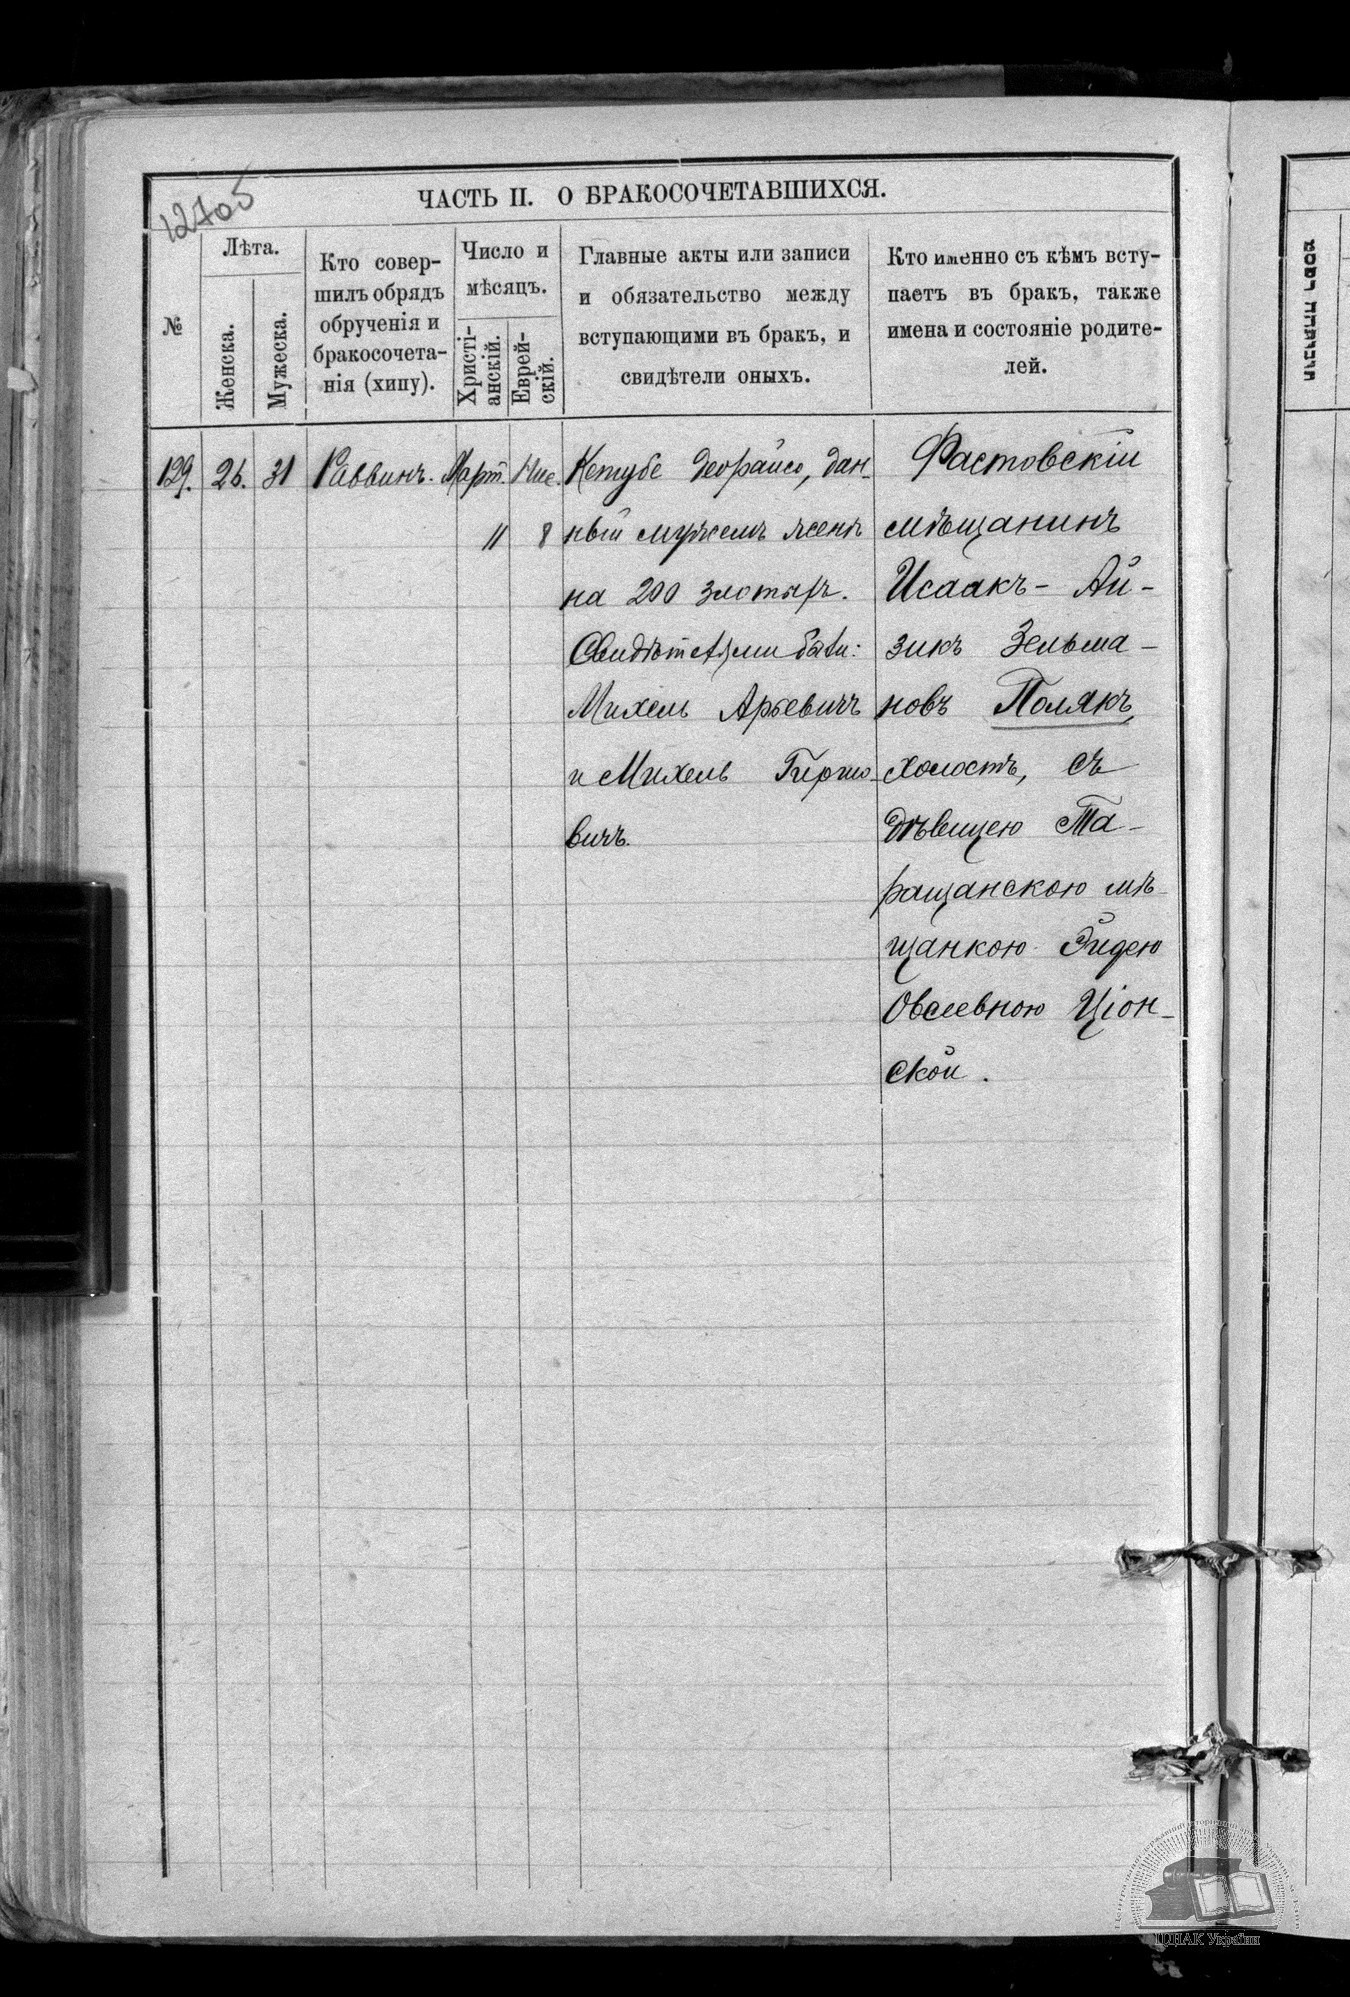 12705
ЧАСТЬ II. О БРАКОСОЧЕТАВШИХСЯ.
№
Лѣта.
Женска.
Мужеска.
Кто совер-
шилъ обрядъ
обрученія и
бракосочета-
нія (хипу).
Число и
мѣсяцъ.
Христі-
анскій.
Еврей-
скій.
Главные акты или записи
и обязательство между
вступающими въ бракъ, и
свидѣтели оныхъ.
Кто именно съ кѣмъ всту-
паетъ въ бракъ, также
имена и состояніе родите-
лей.
129. 26. 31 Раввинъ. Март. Нис.
11 8
Кетубе деорайсо, дан-
ный мужемъ женѣ
на 200 злотыхъ.
Свидѣтелями были:
Михель Арьевичъ
и Михель Гиршо-
вичъ.
Фастовскій
мѣщанинъ
Исаакъ - Ай-
зикъ Зельма-
новъ Полякъ,
холостъ, съ
дѣвицею Та-
ращанскою мѣ-
щанкою
Овсеевною Ціон-
ской.
ЦДІАК України